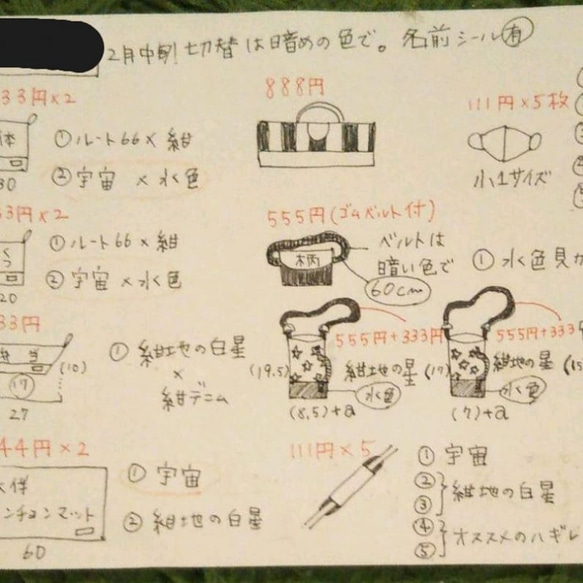 2月中旬! 切替は暗めの色で。 名前シール有
33円×2
体
30
① ルート66×紺
② 宇宙 × 水色
888円
111円×5枚
小1サイズ
33円×2
くつ
20
① ルート66×紺
② 宇宙×水色
555円(ゴムベルト付)
柄
ベルトは
暗い色で
60cm
① 水色見
33円
弁当
(17)
(10)
27
① 紺地の白星
×
紺デニム
555円+333円
(19.5)
紺地の星
水色
(8.5)+a
555円+333
(17)
紺地の星
(15
水色
(7)+a
44円×2
ンチョンマット
60
① 宇宙
② 紺地の白星
111円×5
① 宇宙
②
③ 紺地の白星
④
⑤ オススメのハギレ